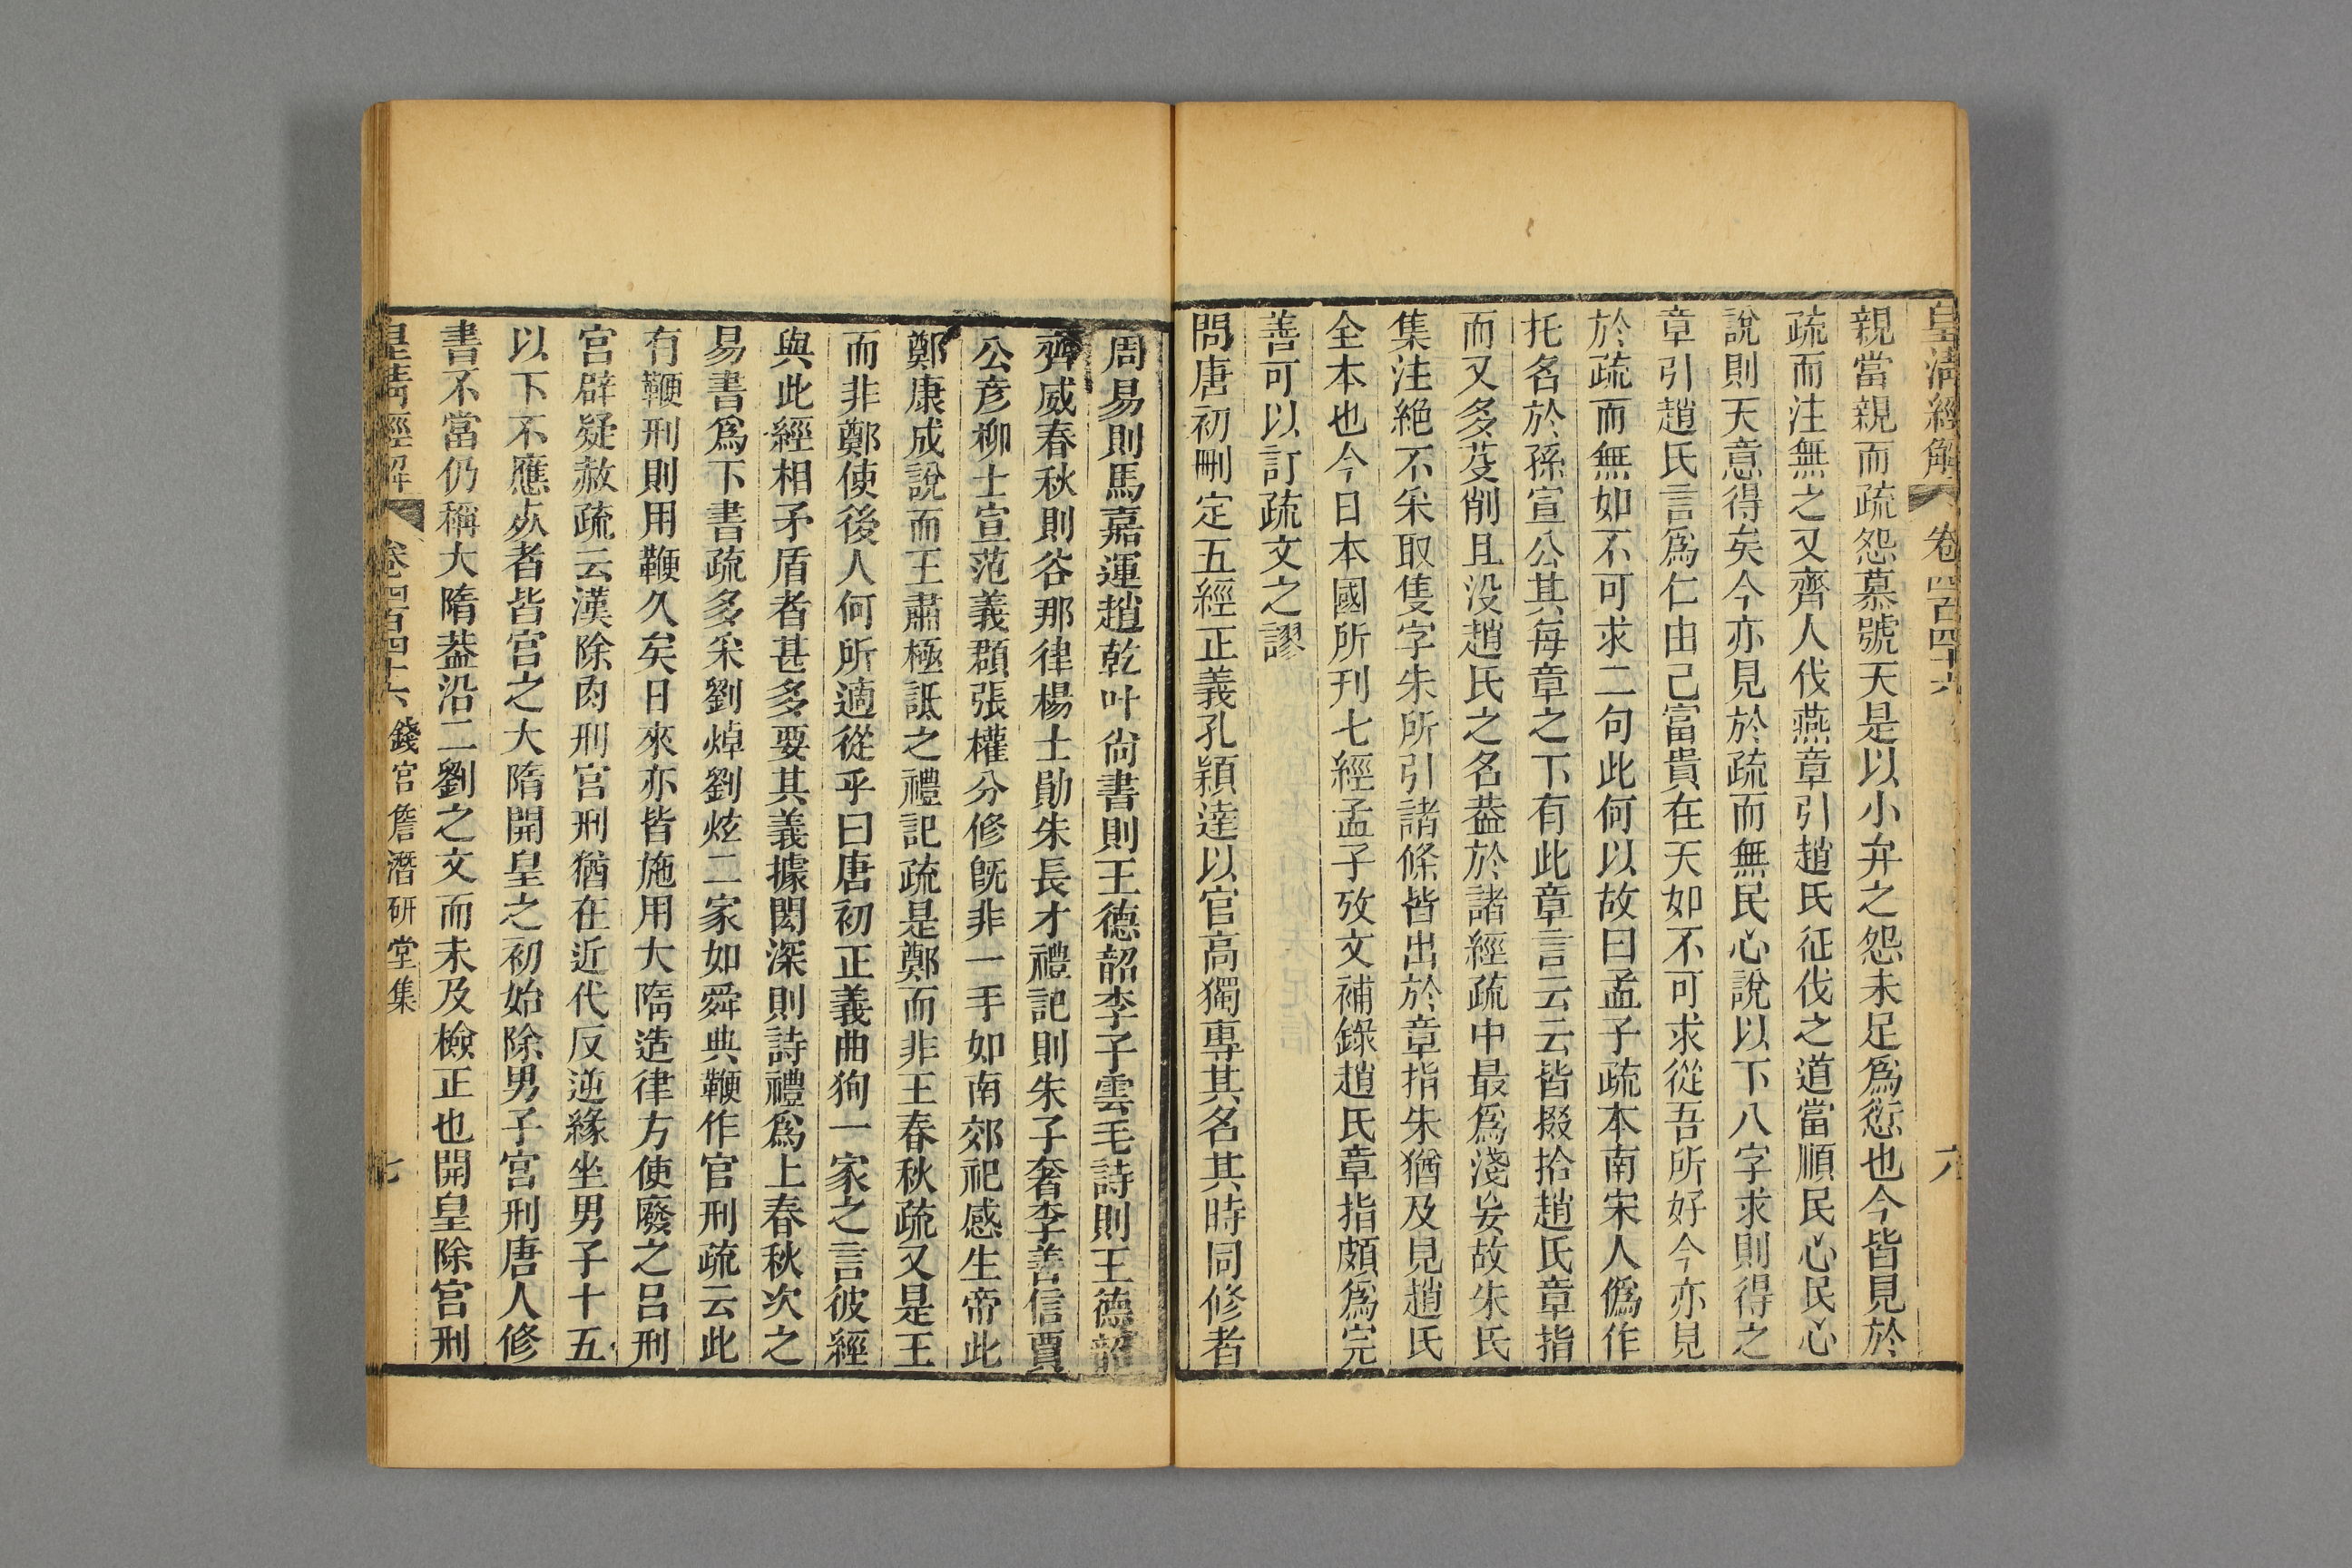 皇清經解 卷四百四十六 六
親當親而疏怨慕號天是以小弁之怨未足爲愆也今皆見於
疏而注無之又齊人伐燕章引趙氏征伐之道當順民心民心
說則天意得矣今亦見於疏而無民心說以下八字求則得之
章引趙氏言爲仁由己富貴在天如不可求從吾所好今亦見
於疏而無如不可求二句此何以故曰孟子疏本南宋人僞作
托名於孫宣公其每章之下有此章言云云皆掇拾趙氏章指
而又多芟削且没趙氏之名葢於諸經疏中最爲淺妄故朱氏
集注絶不采取隻字朱所引諸條皆出於章指朱猶及見趙氏
全本也今日本國所刊七經孟子攷文補錄趙氏章指頗爲完
善可以訂疏文之謬
問唐初刪定五經正義孔穎達以官高獨專其名其時同修者
周易則馬嘉運趙乾叶尙書則王德韶李子雲毛詩則王德韶
齊威春秋則谷那律楊士勛朱長才禮記則朱子奢李善信賈
公彥柳士宣范義頵張權分修旣非一手如南郊祀感生帝此
鄭康成說而王肅極詆之禮記疏是鄭而非王春秋疏又是王
而非鄭使後人何所適從乎曰唐初正義曲狥一家之言彼經
與此經相矛盾者甚多要其義據閎深則詩禮爲上春秋次之
易書爲下書疏多采劉焯劉炫二家如舜典鞭作官刑疏云此
有鞭刑則用鞭久矣日來亦皆施用大隋造律方使廢之呂刑
宮辟疑赦疏云漢除肉刑宮刑猶在近代反逆緣坐男子十五
以下不應死者皆宮之大隋開皇之初始除男子宮刑唐人修
書不當仍稱大隋葢沿二劉之文而未及檢正也開皇除宮刑
皇清經解 卷四百四十六 錢宮詹潛研堂集 七